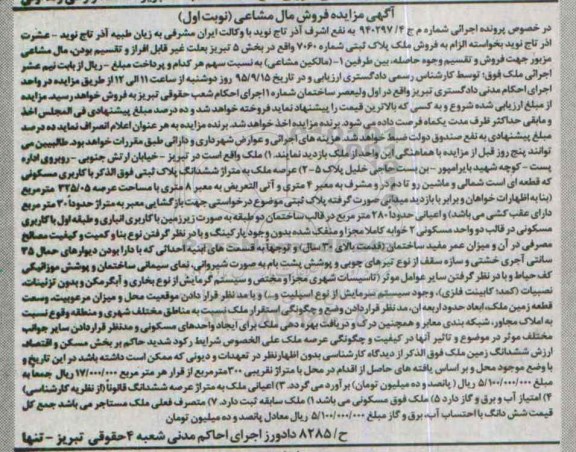 آگهی مزایده فروش مال مشاعی (نوبت اول)
در خصوص پرونده اجرائی شماره م ج ۹۴۰۲۹۷/۴ به نفع اشرف آذر تاج نوید با وکالت ایران مشرفی به زیان طیبه آذر تاج نوید - عشرت
آذر تاج نوید بخواسته الزام به فروش ملک پلاک ثبتی شماره ۷۰۶۰ واقع در بخش ۵ تبریز بعلت غیر قابل افراز و تقسیم بودن، مال مشاعی
مزبور جهت فروش و تقسیم وجوه حاصله، بین طرفین ۱- (مالکین مشاعی) به نسبت سهم هر کدام و پرداخت مبلغ - ریال از بابت نیم عشر
اجرائی ملک فوق: توسط کارشناس رسمی دادگستری ارزیابی و در تاریخ ۹۵/۹/۱۵ روز دوشنبه از ساعت ۱۱ الی ۱۲ از طریق مزایده در واحد
اجرای احکام مدنی دادگستری تبریز واقع در اول ولیعصر ساختمان شماره ۱ اجرای احکام شعب حقوقی تبریز به فروش خواهد رسید. مزایده
از مبلغ ارزیابی شده شروع و به کسی که بالاترین قیمت را پیشنهاد نماید فروخته خواهد شد و ده درصد مبلغ پیشنهادی فی المجلس اخذ
و مابقی حداکثر ظرف مدت یکماه فرصت داده می شود. برنده مزایده اخذ خواهد شد. برنده مزایده به هر عنوان اعلام انصراف نماید ده درصد
مبلغ پیشنهادی به نفع صندوق دولت ضبط خواهد شد. هزینه های اجرائی و عوارض شهرداری و دارائی طبق مقررات خواهد بود. طالبیین می
توانند پنج روز قبل از مزایده با هماهنگی این واحد از ملک بازدید نمایند. ۱) ملک واقع است در تبریز - خیابان ارتش جنوبی - روبروی اداره
پست - کوچه شهید بایرامپور - بن بست حاجی خلیل پلاک ۵ - ۲) عرصه ملک به متراژ ششدانگ پلاک ثبتی فوق الذکر با کاربری مسکونی
که قطعه ای است شمالی و ماشین رو تا دم در و مشرف به معبر ۴ متری و آتی التعریض به معبر ۸ متری با مساحت عرصه ۳۲۵/۰۵ متر مربع
(بنا به اظهارات خواهان و برابر با بازدید میدانی صورت گرفته پلاک ثبتی موضوع درخواستی جهت بازگشایی معبر به متراژ حدوداً ۳۰ متر مربع
دارای عقب کشی می باشد) و اعیانی حدوداً ۲۸۰ متر مربع در قالب ساختمان دو طبقه به صورت زیرزمین با کاربری انباری و طبقه اول با کاربری
مسکونی در قالب دو واحد مسکونی ۲ خوابه کاملا مجزا و منفک شده بدون وجود پارکینگ و با در نظر گرفتن نوع بنا و کمیت و کیفیت مصالح
مصرفی در آن و میزان عمر مفید ساختمان (قدمت بالای ۳۰ سال) و توجها به قسمت های ابنیه احداثی که با دارا بودن دیوارهای حمال ۳۵
سانتی آجری خشتی و سازه سقف از نوع تیرهای چوبی و پوشش پشت بام به صورت شیروانی، نمای سیمانی ساختمان و پوشش موزائیکی
کف حیاط و با در نظر گرفتن سایر عوامل موثر (تاسیسات شهری مجزا و مختص و سیستم گرمایش از نوع بخاری و آبگرمکن و بدون تزئینات،
نصبیات (کمد؛ کابینت فلزی)، وجود سیستم سرمایش از نوع اسپلیت و..) و با مد نظر قرار دادن موقعیت محل و میزان مرغوبیت، وسعت
قطعه زمین ملک، ابعاد حدود اربعه آن، مد نظر قراردادن وضع و چگونگی استقرار ملک نسبت به مناطق مختلف شهری و منطقه وقوع نسبت
به املاک مجاور، شبکه بندی معابر و همچنین درک و دریافت بهره دهی ملک برای ایجاد واحدهای مسکونی و مدنظر قراردادن سایر جوانب
مختلف موثر در موضوع و تاثیر آنها در کیفیت و چگونگی عرصه ملک علی الخصوص شرایط رکود شدید حاکم بر بخش مسکن و اقتصاد
ارزش ششدانگ زمین ملک فوق الذکر از دیدگاه کارشناسی بدون اظهار نظر در تعهدات و دیونی که ممکن است داشته باشد در این تاریخ و
با وضع موجود محل و بر اساس یافته های حاصل از اقدام در محل با متراژ تقریبی ۳۰۰ مترمربع از قرار هر متر مربع ۱۷/۰۰۰/۰۰۰ ریال جمعا به
مبلغ ۵/۱۰۰/۰۰۰/۰۰۰ ریال (پانصد و ده میلیون تومان) بر آورد می گردد. ۳) اعیانی ملک به متراژ عرصه ششدانگ قانوناً (از نظریه کارشناسی)
۴) امتیاز آب و برق و گاز دارد ۵) ملک فوق مسکونی می باشد ۶) ملک سابقه ثبت دارد. ۷) متصرف فعلی ملک مستاجر می باشد جمع کل
قیمت شش دانگ با احتساب آب، برق و گاز مبلغ ۵/۱۰۰/۰۰۰/۰۰۰ ریال معادل پانصد و ده میلیون تومان
ح/ ۸۲۸۵ دادورز اجرای احاکم مدنی شعبه ۴ حقوقی تبریز - تنها